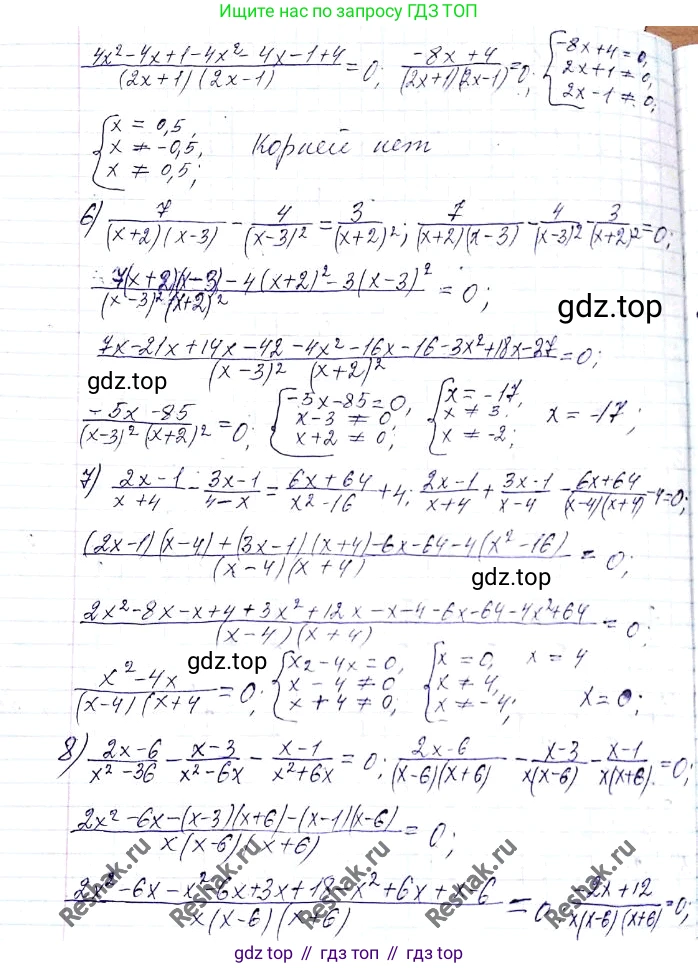 Найти ещё больше ответов можно через поиск по запросу ГДЗ ТОП
(4x² - 4x + 1 - 4x² - 4x - 1 + 4)/((2x+1)(2x-1)) = 0; (-8x+4)/((2x+1)(2x-1)) = 0; { -8x+4=0, 2x+1≠0, 2x-1≠0;
{ x = 0,5, x ≠ -0,5, x ≠ 0,5; Корней нет
6) 7/((x+2)(x-3)) - 4/(x-3)² = 3/(x+2)²; 7/((x+2)(x-3)) - 4/(x-3)² - 3/(x+2)² = 0;
(7(x+2)(x-3) - 4(x+2)² - 3(x-3)²)/((x-3)²(x+2)²) = 0;
gdz.top
(7x - 21x + 14x - 42 - 4x² - 16x - 16 - 3x² + 18x - 27)/((x-3)² (x+2)²) = 0;
gdz.top
(-5x - 85)/((x-3)²(x+2)²) = 0; { -5x-85=0, x-3≠0, x+2≠0; { x = -17, x ≠ 3, x ≠ -2; x = -17;
7) (2x-1)/(x+4) - (3x-1)/(4-x) = (6x+64)/(x²-16) + 4; (2x-1)/(x+4) + (3x-1)/(x-4) - (6x+64)/((x-4)(x+4)) - 4 = 0;
((2x-1)(x-4) + (3x-1)(x+4) - 6x - 64 - 4(x²-16))/((x-4)(x+4)) = 0;
gdz.top
(2x² - 8x - x + 4 + 3x² + 12x - x - 4 - 6x - 64 - 4x² + 64)/((x-4)(x+4)) = 0;
gdz.top
(x² - 4x)/((x-4)(x+4) = 0; { x2 - 4x = 0, x - 4 ≠ 0, x + 4 ≠ 0; { x = 0, x = 4 x ≠ 4, x ≠ -4; x = 0;
8) (2x-6)/(x²-36) - (x-3)/(x²-6x) - (x-1)/(x²+6x) = 0; (2x-6)/((x-6)(x+6)) - (x-3)/(x(x-6)) - (x-1)/(x(x+6)) = 0;
(2x² - 6x - (x-3)(x+6) - (x-1)(x-6))/(x(x-6)(x+6)) = 0;
(2x² - 6x - x² - 6x + 3x + 18 - x² + 6x + x - 6)/(x(x-6)(x+6)) = 0 (-2x+12)/(x(x-6)(x+6)) = 0;
Reshak.ru Reshak.ru Reshak.ru Reshak.ru
gdz top // гдз топ // gdz.top